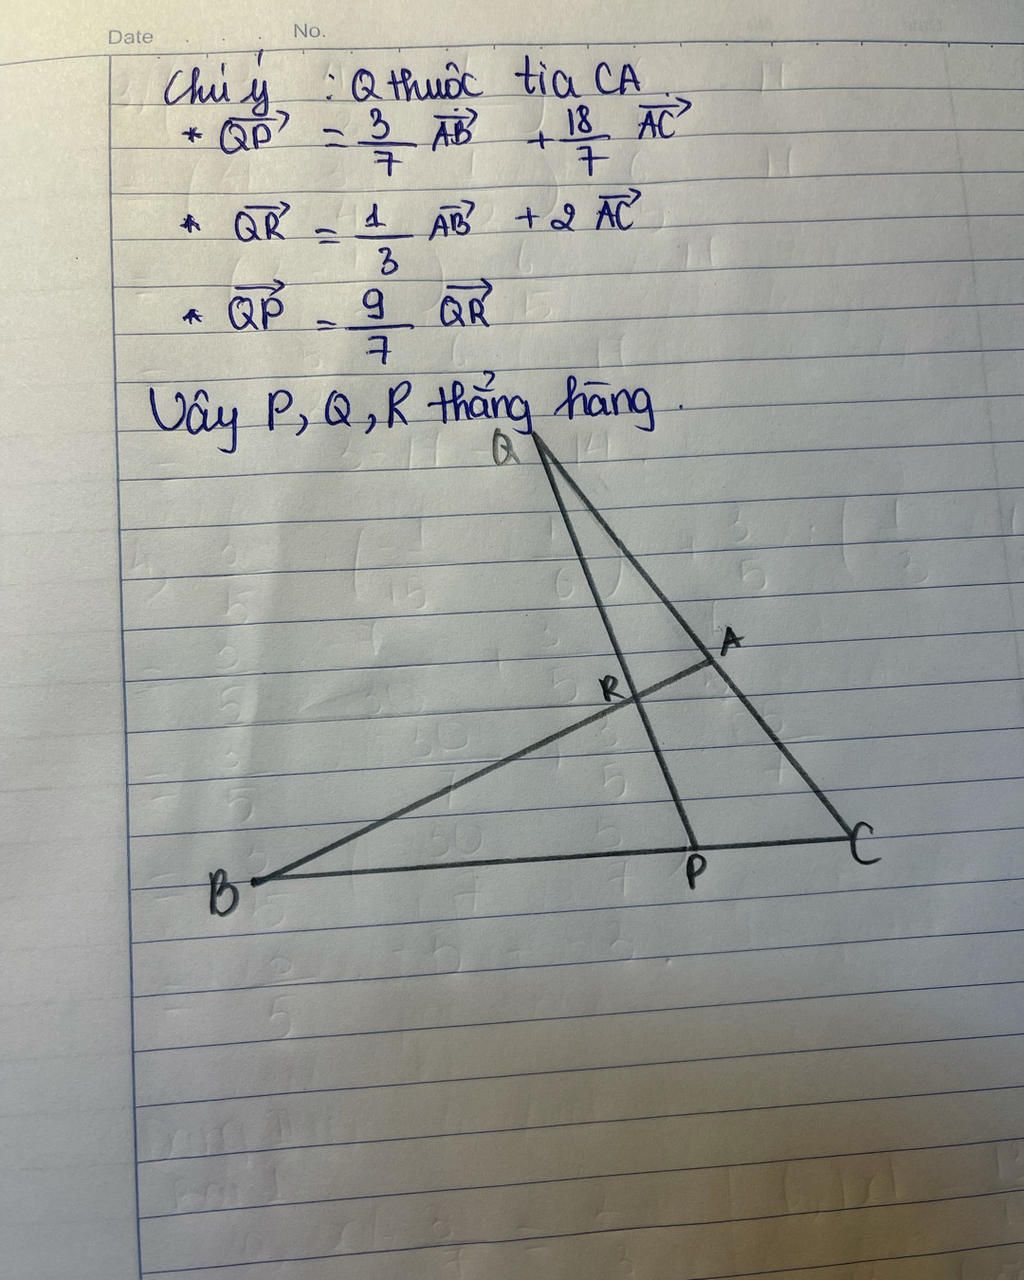 Date . . . No.
Chú ý : Q thuôc tia CA.
* \overrightarrow{QP} = \frac{3}{7} \overrightarrow{AB} + \frac{18}{7} \overrightarrow{AC}
* \overrightarrow{QR} = \frac{1}{3} \overrightarrow{AB} + 2 \overrightarrow{AC}
* \overrightarrow{QP} = \frac{9}{7} \overrightarrow{QR}
Vây P, Q, R thẳng hàng.
Q
A
R
C
P
B